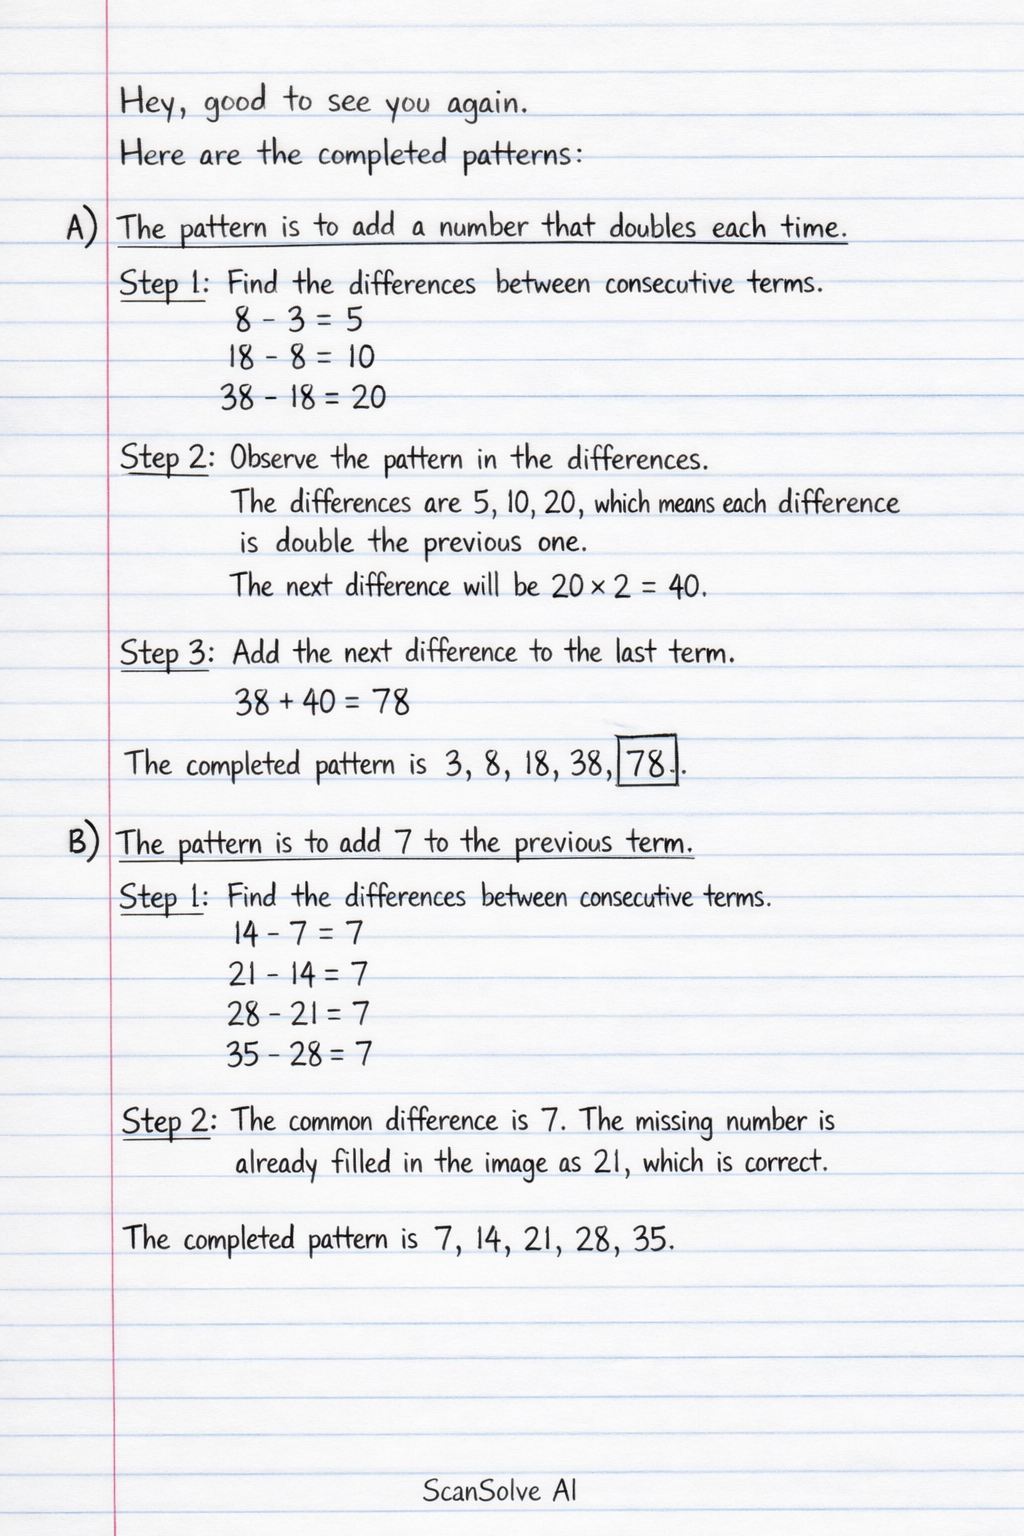 Hey, good to see you again.
Here are the completed patterns:
A) The pattern is to add a number that doubles each time.
Step 1: Find the differences between consecutive terms.
8 - 3 = 5
18 - 8 = 10
38 - 18 = 20
Step 2: Observe the pattern in the differences.
The differences are 5, 10, 20, which means each difference
is double the previous one.
The next difference will be 20 × 2 = 40.
Step 3: Add the next difference to the last term.
38 + 40 = 78
The completed pattern is 3, 8, 18, 38, 78.
B) The pattern is to add 7 to the previous term.
Step 1: Find the differences between consecutive terms.
14 - 7 = 7
21 - 14 = 7
28 - 21 = 7
35 - 28 = 7
Step 2: The common difference is 7. The missing number is
already filled in the image as 21, which is correct.
The completed pattern is 7, 14, 21, 28, 35.
ScanSolve AI